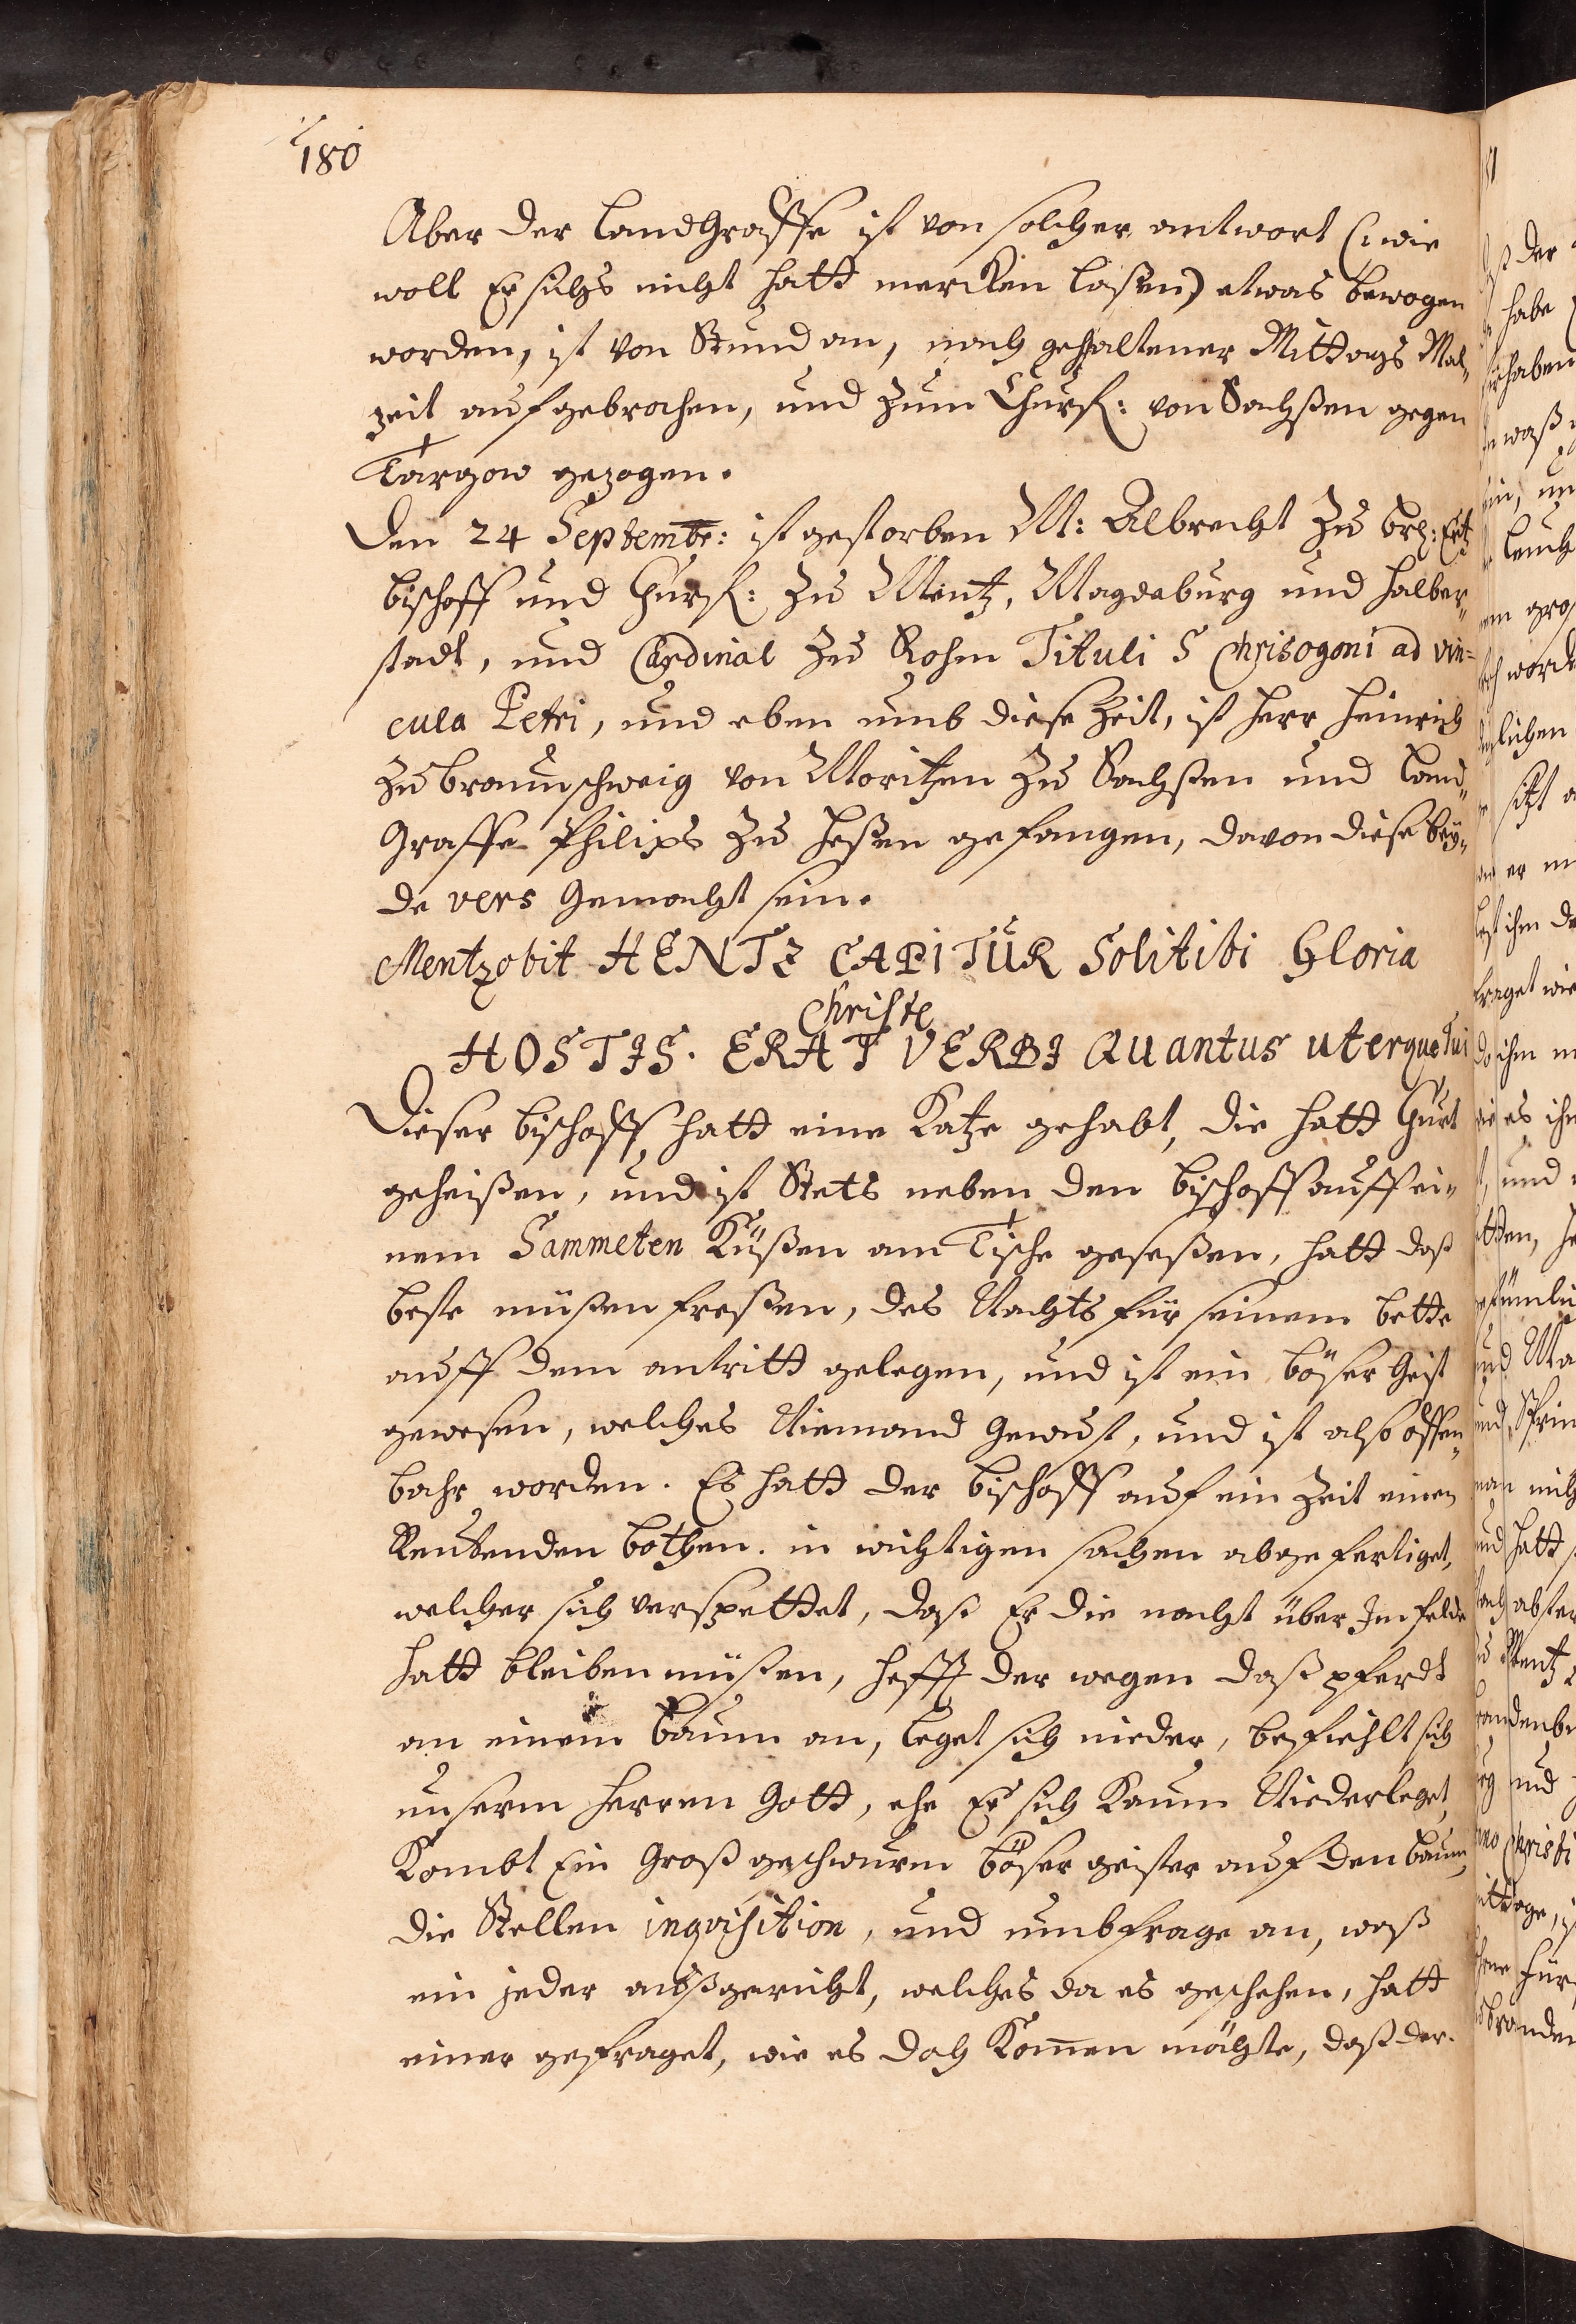 180
Aber der LandGraffe ist von solcher antwort (: wie
woll Er sichs nicht hatt mercken laßen) etwas bewogen
worden, ist von Stund an, nach gehaltener Mittags Mal„
zeit aufgebrochen, und zum Churf: von Sachßen gegen
Targow gezogen.
Den 24 Septembr: ist gestorben M: Albrecht zu Br: Ertz
bischoff und Churf: zu Mentz, Magdeburg und Halber„
stadt, und Cardinal zu Rohm Tituli S Chrisogoni ad vin=
cula Petri, und eben umb diese Zeit, ist Herr Heinrich
zu braunschweig von Moritzen zu Sachßen und Land„
Graffe Philips zu Heßen gefangen, davon diese bey„
de vers Gemacht sein.
Mentz obit HENTZ CAPITUR Soli tibi Gloria
Christe
HOSTIS. ERAT VERBI Quantus uterque tui
Dieser bischoff hatt eine Katze gehabt, die hatt Gurt
geheißen, und ist Stets neben den bischoff auff ei„
nem Sammeten Küßen am Tische geseßen, hatt daß
beste müßen freßen, des Nachts für seinem bette
auff dem antritt gelegen, und ist ein böser Geist
gewesen, welches Niemand Gewust, und ist also offen„
bahr worden. Es hatt der bischoff auf ein Zeit einen
Reutenden bothen. in wichtigen sachen abgefertiget,
welcher sich verspettet, daß Er die nacht über Im felde
hatt bleiben müßen, hefft der wegen daß pferdt
an einem baum an, leget sich nieder, befiehlt sich
unserm Herren Gott, ehe Er sich Kaum Niederleget,
Kombt Ein Groß geschwurm böser geister auf den baum,
die Stellen inqvisition, und umbfrage an, waß
ein jeder außgericht, welches da es geschehen, hatt
einer gefraget, wie es doch Kom̄en möchte, daß der.